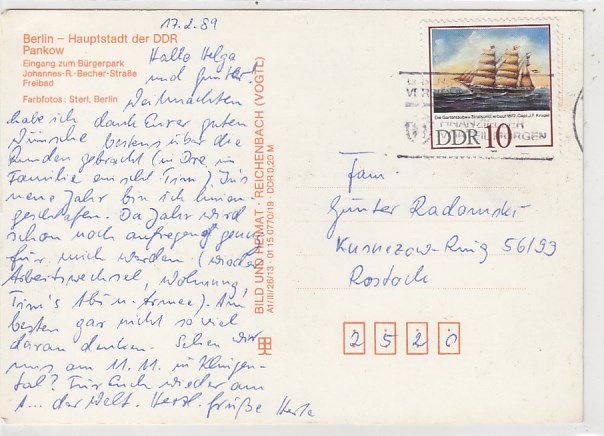 17.2.89
Berlin – Hauptstadt der DDR
Pankow
Eingang zum Bürgerpark
Johannes-R.-Becher-Straße
Freibad
Farbfotos: Sterl, Berlin
Hallo Helga
und Günter!
Weihnachten
habe ich dank Eurer guten
Wünsche bestens über die
Runden gebracht (in Dre. in
Familie Tim). Ins
neue Jahr bin ich hinein-
geschlafen. Da Jahr wird
schon noch aufregend genug
für mich werden. (wieder
Arbeitswechsel, Wohnung,
Tim's Abi u. Armee). Am
besten gar nicht so viel
daran denken. Sehen wir
uns am 11.11. in Klingen-
tal? Für Euch wieder am
A... der Welt. Herzl. Grüße Herta
BILD UND HEIMAT · REICHENBACH (VOGTL)
A1/III/26/13 · 01 15 0770/19 · DDR 0,20 M
DDR 10
Fam.
Günter Radomski
Kusnezow-Ring 56/99
Rostock
2520